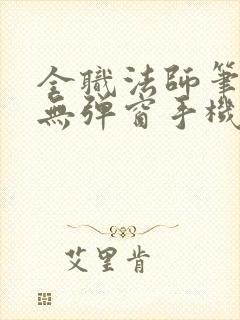 全職法師筆
無彈窗手機
艾里肯